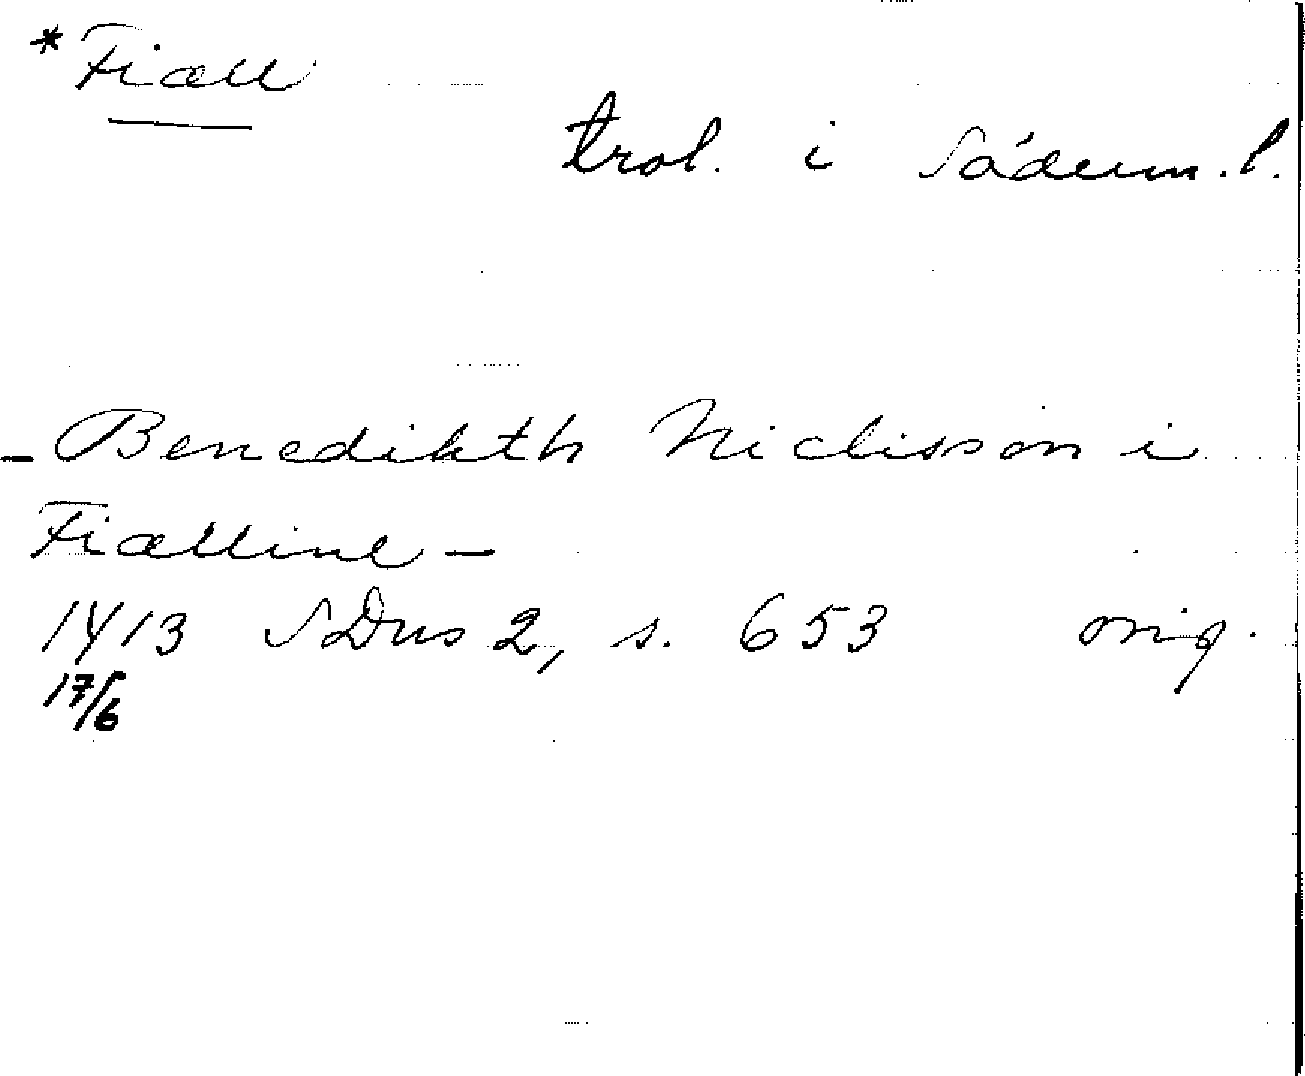 *Fiæll
trol. i Söderm.l.
- Benedikth Niclisson i
Fiælline -
1413 SDns 2, s. 653 orig.
17/6